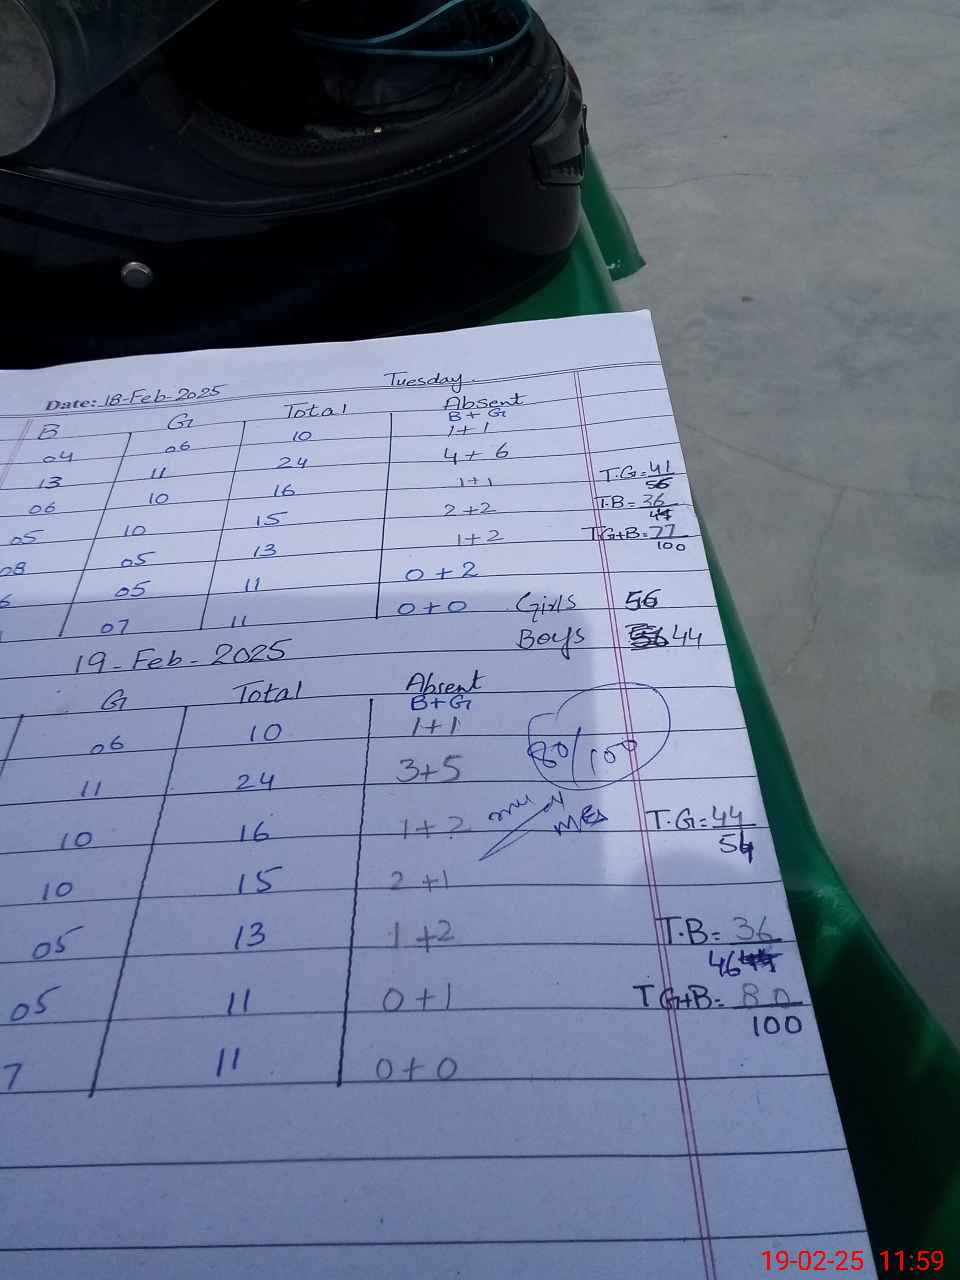 Date: 18-Feb-2025 Tuesday
B G Total Absent
B+G
04 06 10 1+1
13 11 24 4+6
06 10 16 1+1
05 10 15 2+2
08 05 13 1+2
6 05 11 0+2
07 11 0+0
T.G=41/56
T.B=36/44
TG+B=77/100
Girls 56
Boys 44
19-Feb-2025
G Total Absent
B+G
06 10 1+1
11 24 3+5
10 16 1+2
10 15 2+1
05 13 1+2
05 11 0+1
7 11 0+0
80/100
T.G=44/54
T.B=36/46
TG+B=80/100
19-02-25 11:59